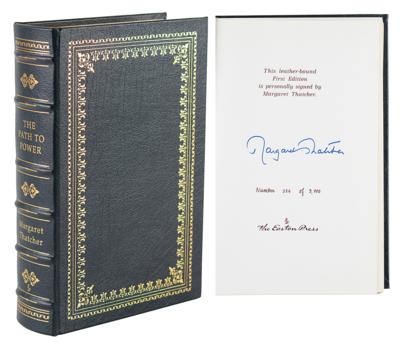 THE
PATH TO
POWER
Margaret
Thatcher
This leather-bound
First Edition
is personally signed by
Margaret Thatcher.
Margaret Thatcher
Number 256 of 3,000
The Easton Press